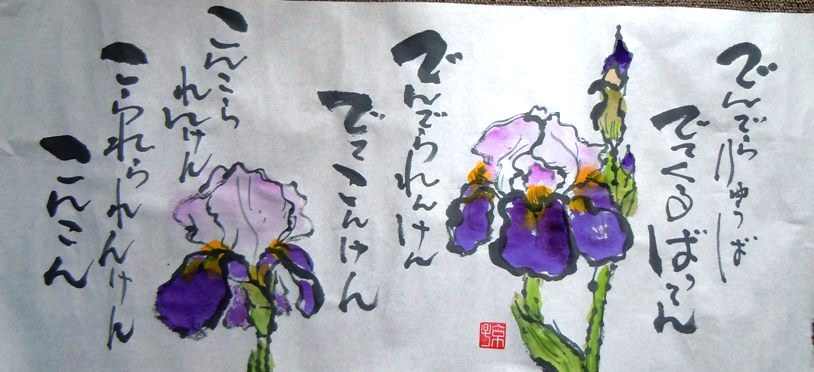 でんでらりゅうば
でてくるばってん
でんでられんけん
でてこんけん
こんこら
れんけん
こられられんけん
こんこん